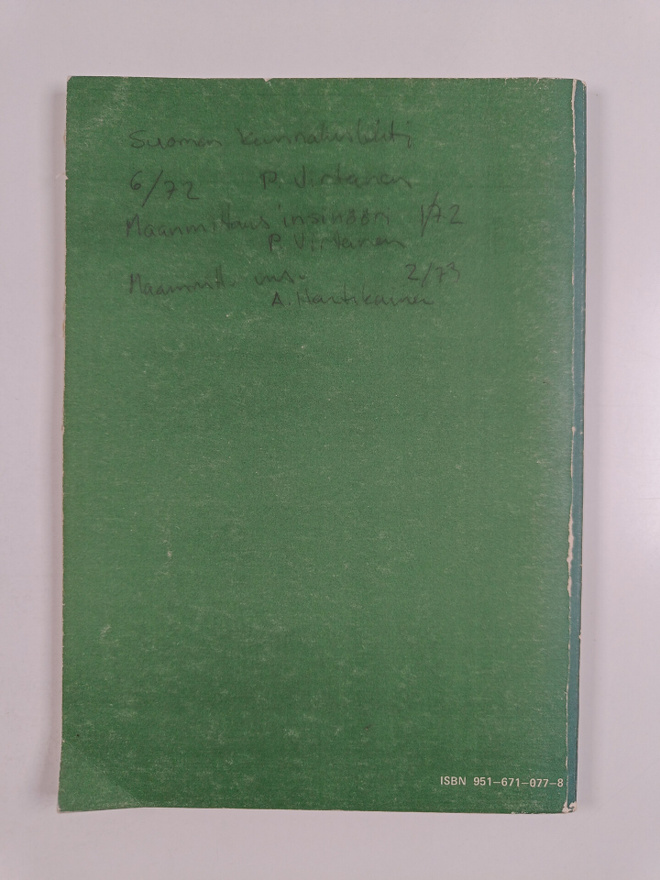 Suomen kunnallislehti
6/72 P. Virtanen
Maanmittaus insinööri 1/72
P. Virtanen
Maanmitt. ins. 2/73
A. Hartikainen
ISBN 951-671-077-8